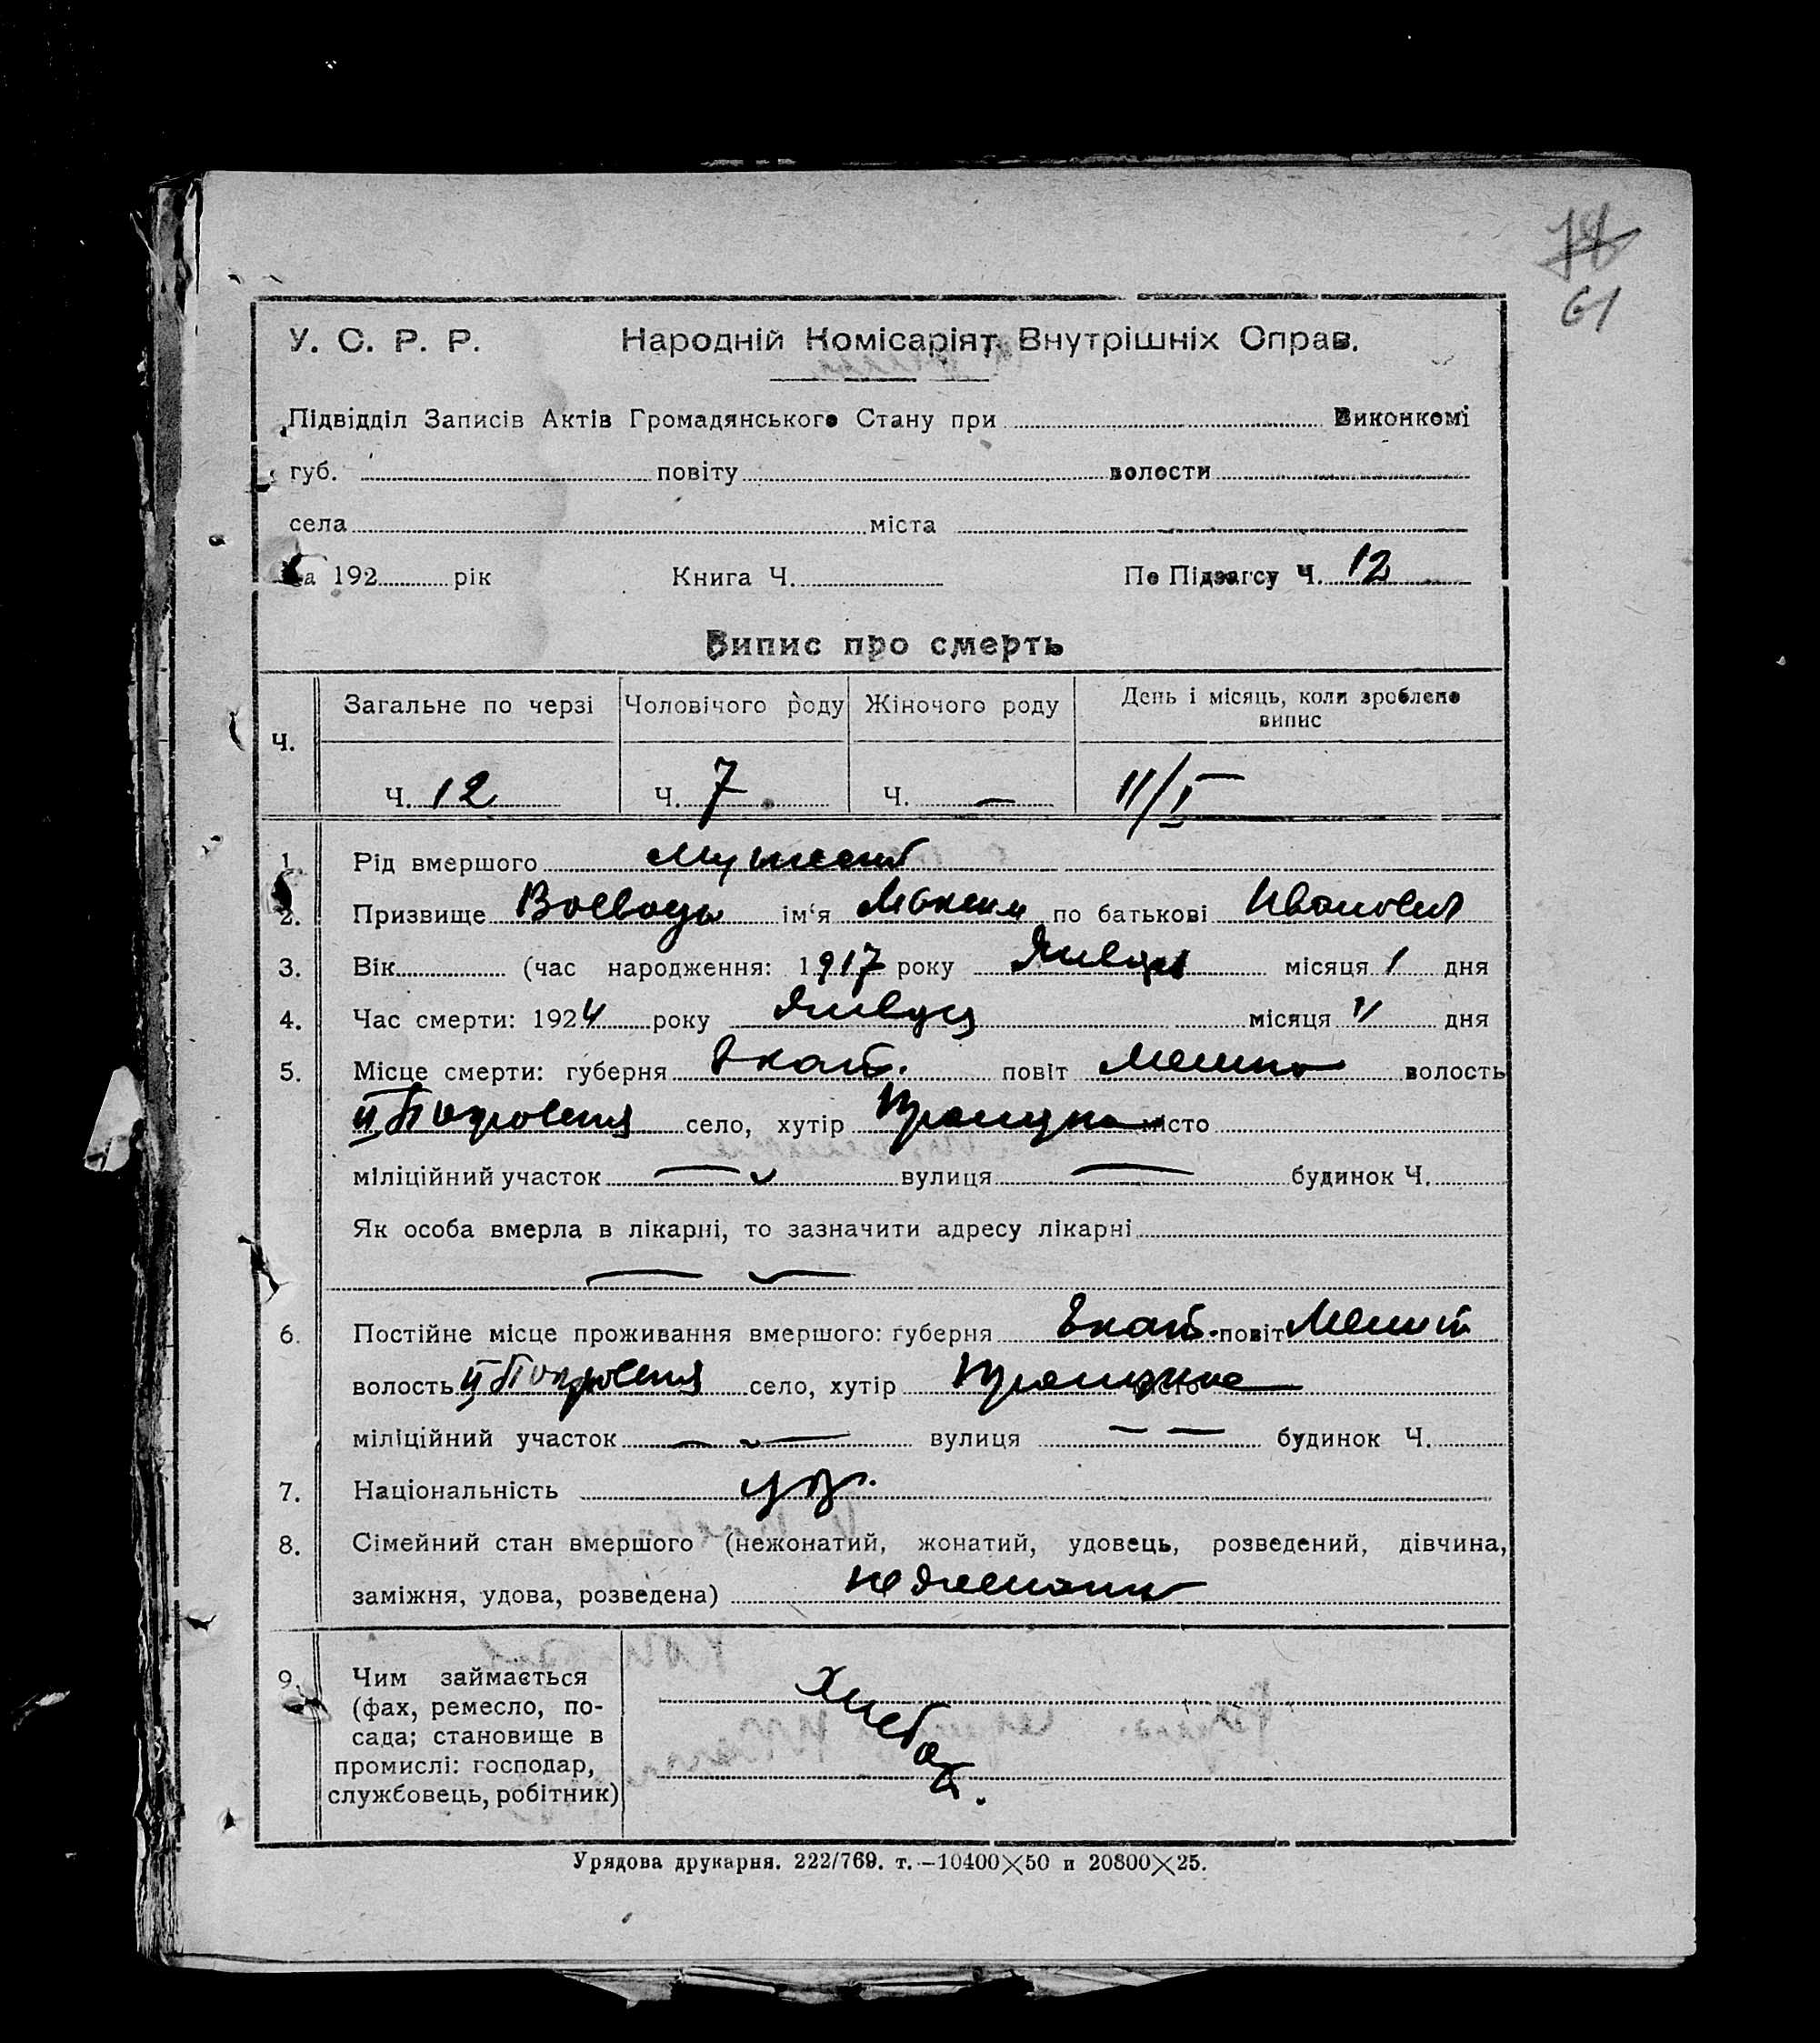 78
61
У. С. Р. Р. Народній Комісаріят Внутрішніх Справ.
Підвідділ Записів Актів Громадянського Стану при Виконкомі
губ. повіту волости
села міста
За 192 рік Книга Ч. По Підзагсу Ч. 12
Випис про смерть
Ч. Загальне по черзі Чоловічого роду Жіночого роду День і місяць, коли зроблено випис
Ч. 12 Ч. 7 Ч. — 11/I
1. Рід вмершого Мужеск
2. Призвище Воевода ім'я Максим по батькові Иванович
3. Вік (час народження: 1917 року Января місяця 1 дня
4. Час смерти: 1924 року Января місяця 11 дня
5. Місце смерти: губерня Екат. повіт волость
II Покровская село, хутір місто
міліційний участок — вулиця — будинок Ч.
Як особа вмерла в лікарні, то зазначити адресу лікарні
— —
6. Постійне місце проживання вмершого: губерня Екат. повіт
волость II Покровская село, хутір місто
міліційний участок — вулиця — — будинок Ч.
7. Національність укр.
8. Сімейний стан вмершого (нежонатий, жонатий, удовець, розведений, дівчина,
заміжня, удова, розведена) не женат
9. Чим займається
(фах, ремесло, по-
сада; становище в
промислі: господар,
службовець, робітник)
Хлебоп.
Урядова друкарня. 222/769. т.—10400×50 и 20800×25.